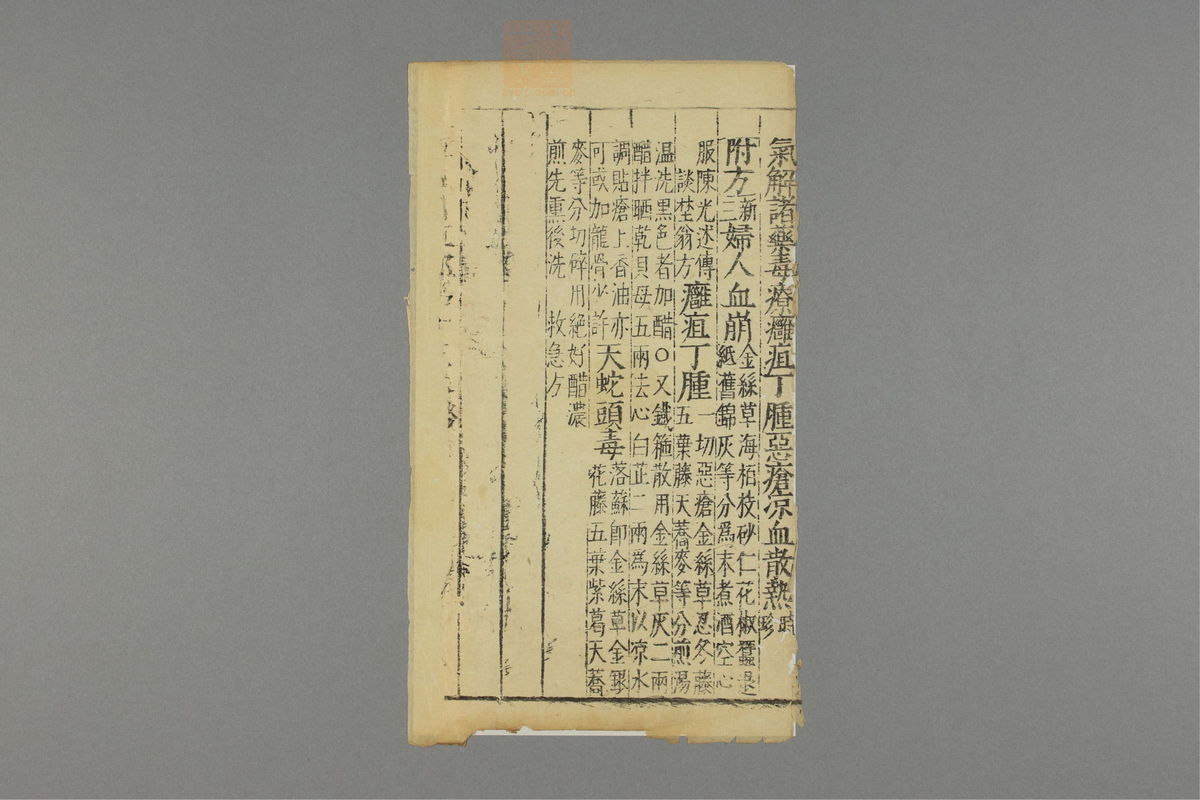 氣解諸藥毒療癰疽丁腫惡瘡凉血散熱時珍
附方新三婦人血崩金絲草海栢枝砂仁花椒蠶退
紙舊錦灰等分爲末煮酒空心
服陳光述傳
談埜翁方癰疽丁腫一切惡瘡金絲草忍冬藤
五葉藤天蕎麥等分煎湯
温洗黒色者加醋○又鐵箍散用金絲草灰二兩
醋拌晒乾貝母五兩去心白芷二兩爲末以凉水
調貼瘡上香油亦
可或加龍骨少許天蛇頭毒落蘇卽金絲草金銀
花藤五葉紫葛天蕎
麥等分切碎用絶好醋濃
煎先熏後洗 救急方